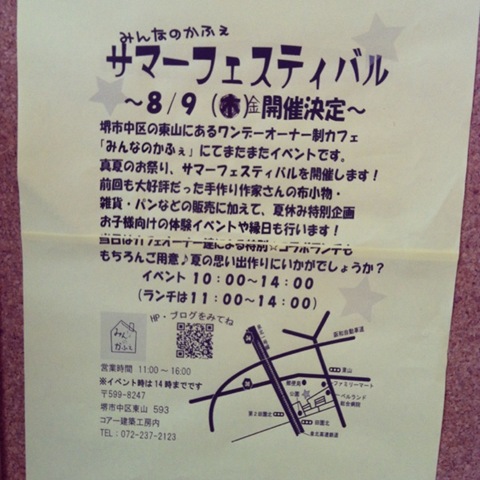 みんなのかふぇ
サマーフェスティバル
～8/9（木）㊎開催決定～
堺市中区の東山にあるワンデーオーナー制カフェ
「みんなのかふぇ」にてまたまたイベントです。
真夏のお祭り、サマーフェスティバルを開催します！
前回も大好評だった手作り作家さんの布小物・
雑貨・パンなどの販売に加えて、夏休み特別企画
お子様向けの体験イベントや縁日も行います！
当日はカフェオーナー達による特別☆コラボランチも
もちろんご用意♪夏の思い出作りにいかがでしょうか？
イベント 10：00～14：00
（ランチは11：00～14：00）
HP・ブログをみてね
みんなの
かふぇ
営業時間 11:00～16:00
※イベント時は14時までです
〒599-8247
堺市中区東山 593
コアー建築工房内
TEL：072-237-2123
阪和自動車道
東山
郵便局
ファミリーマート
公園
ベルランド
総合病院
第2田園北
田園北
泉北高速鉄道